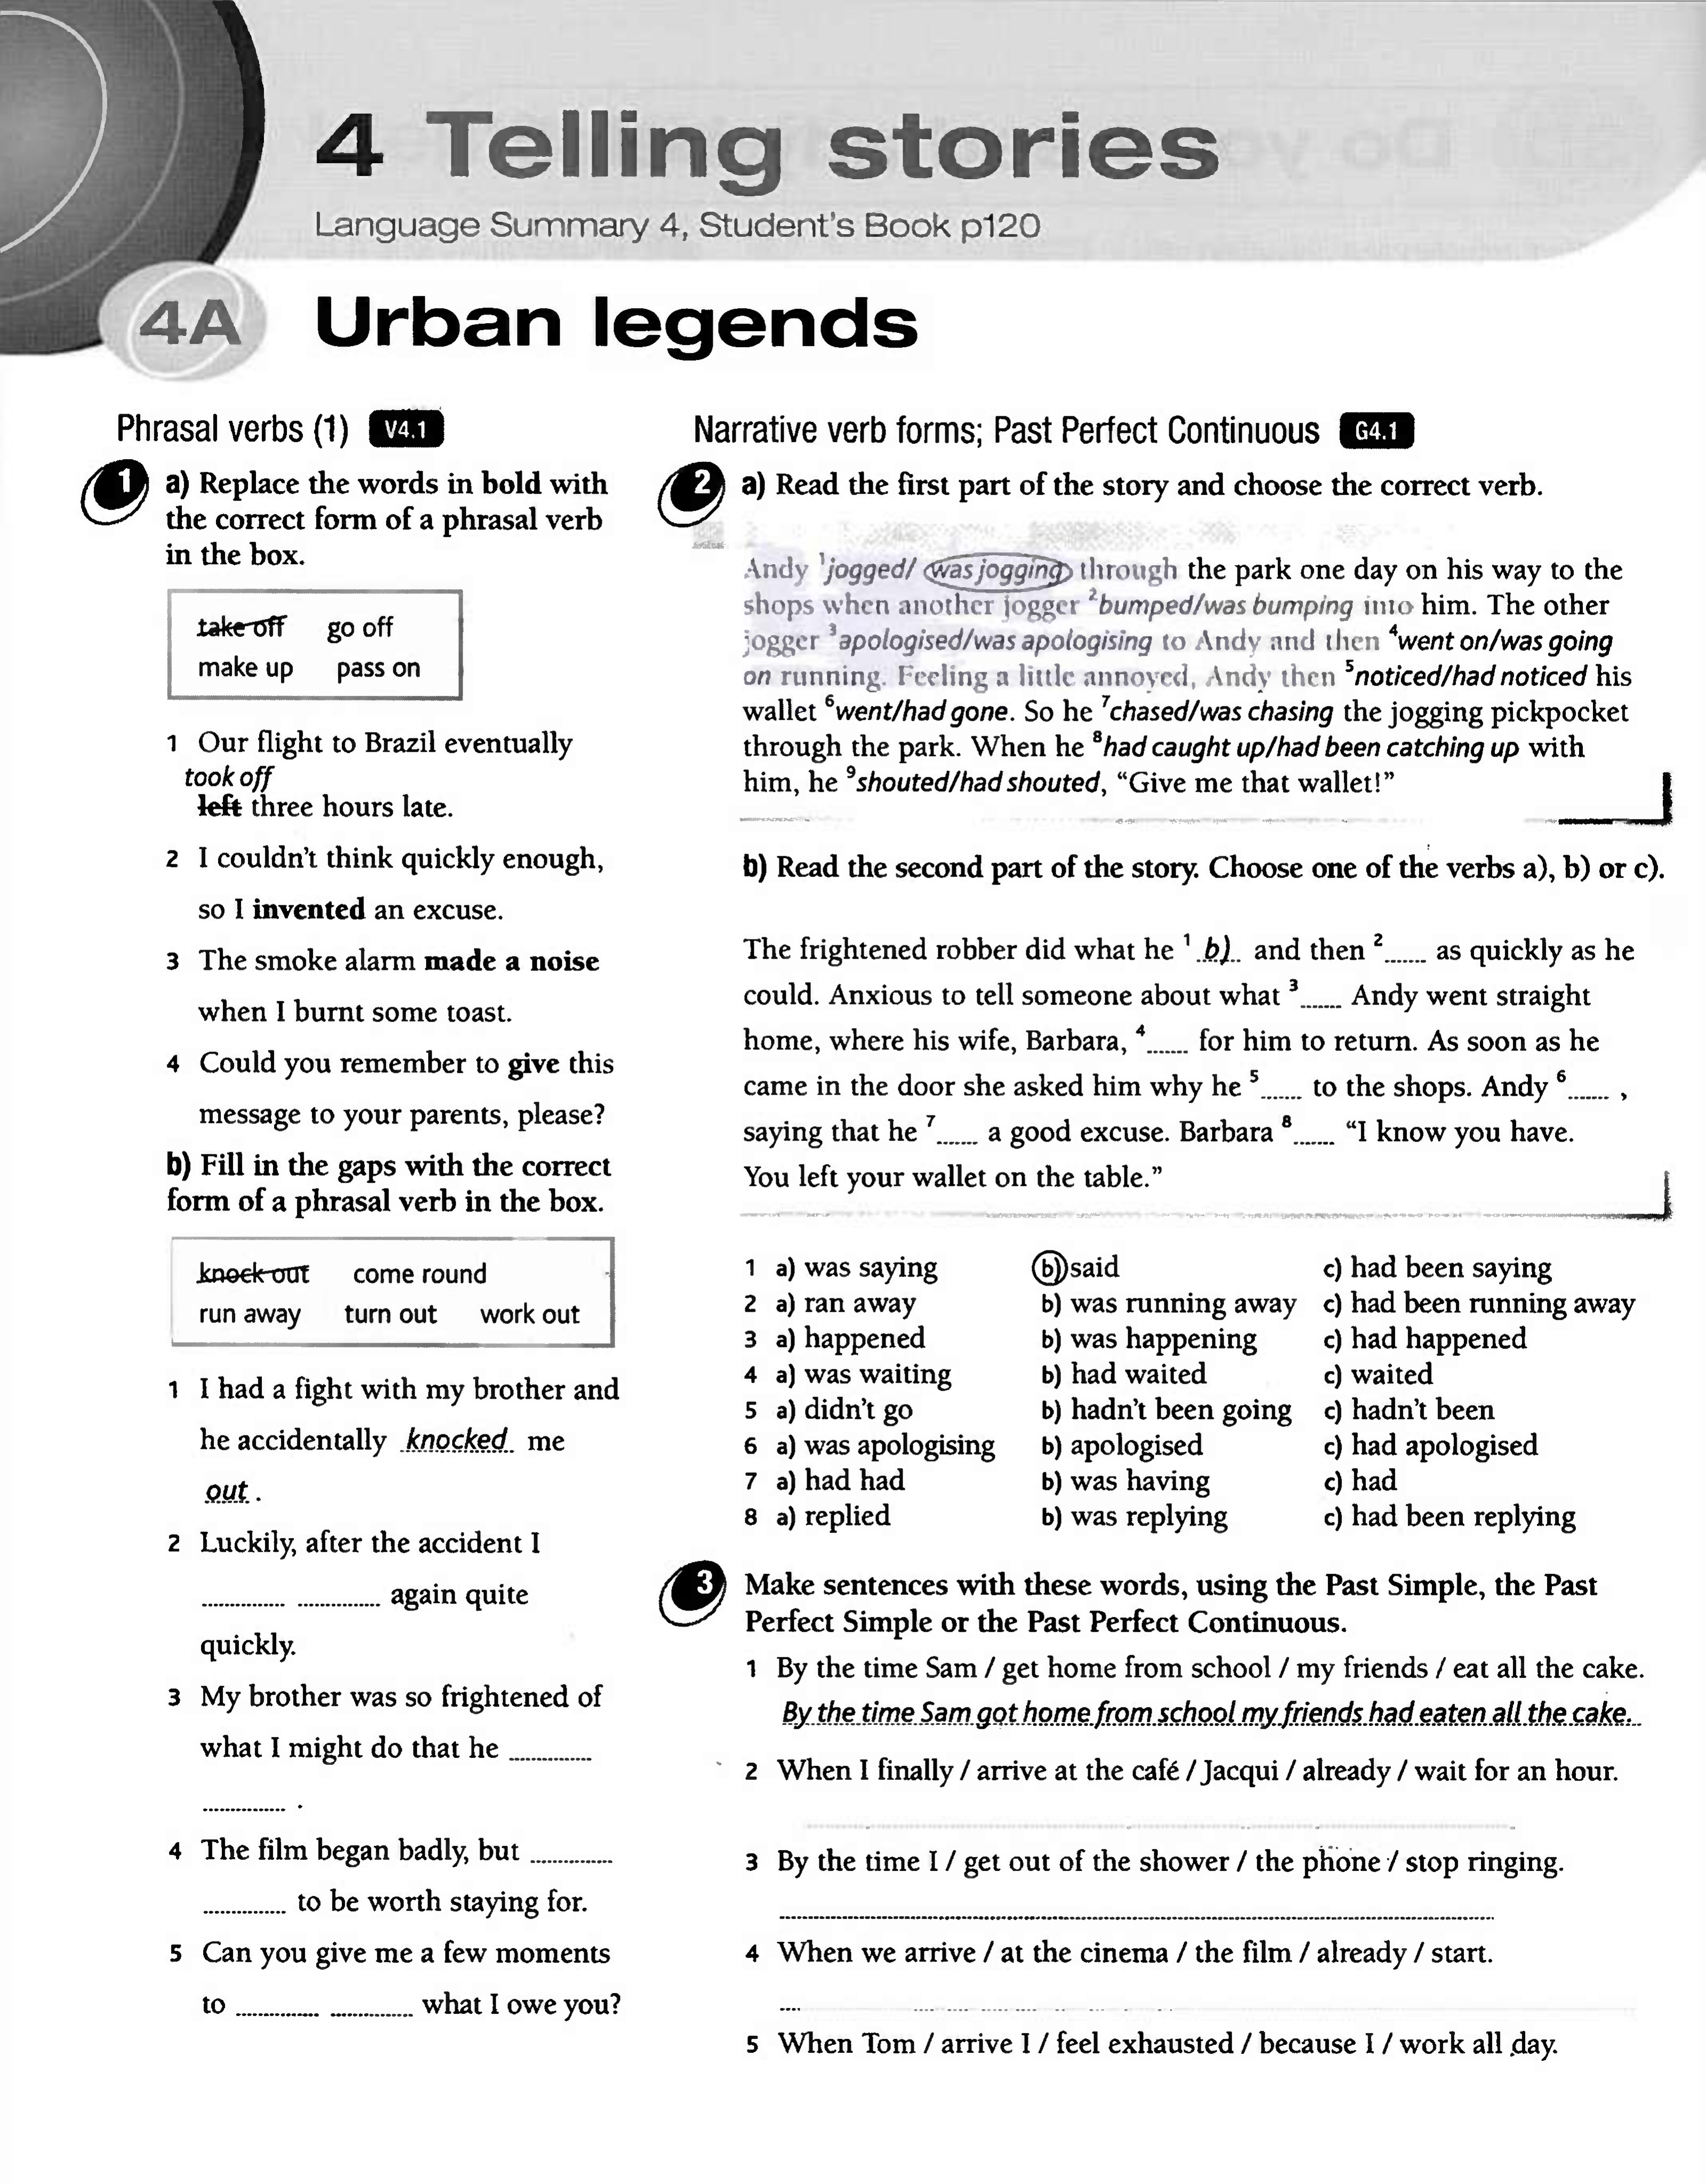 4 Telling stories
Language Summary 4, Student's Book p120
4A Urban legends
Phrasal verbs (1) V4.1
1 a) Replace the words in bold with
the correct form of a phrasal verb
in the box.
take off go off
make up pass on
1 Our flight to Brazil eventually
took off
left three hours late.
2 I couldn't think quickly enough,
so I invented an excuse.
3 The smoke alarm made a noise
when I burnt some toast.
4 Could you remember to give this
message to your parents, please?
b) Fill in the gaps with the correct
form of a phrasal verb in the box.
knock out come round
run away turn out work out
1 I had a fight with my brother and
he accidentally knocked me
out .
2 Luckily, after the accident I
............ ............ again quite
quickly.
3 My brother was so frightened of
what I might do that he ............
............ .
4 The film began badly, but ............
............ to be worth staying for.
5 Can you give me a few moments
to ............ ............ what I owe you?
Narrative verb forms; Past Perfect Continuous G4.1
2 a) Read the first part of the story and choose the correct verb.
Andy 1jogged/ was jogging through the park one day on his way to the
shops when another jogger 2bumped/was bumping into him. The other
jogger 3apologised/was apologising to Andy and then 4went on/was going
on running. Feeling a little annoyed, Andy then 5noticed/had noticed his
wallet 6went/had gone. So he 7chased/was chasing the jogging pickpocket
through the park. When he 8had caught up/had been catching up with
him, he 9shouted/had shouted, “Give me that wallet!”
b) Read the second part of the story. Choose one of the verbs a), b) or c).
The frightened robber did what he 1 b) and then 2...... as quickly as he
could. Anxious to tell someone about what 3...... Andy went straight
home, where his wife, Barbara, 4...... for him to return. As soon as he
came in the door she asked him why he 5...... to the shops. Andy 6...... ,
saying that he 7...... a good excuse. Barbara 8...... “I know you have.
You left your wallet on the table.”
1 a) was saying b) said c) had been saying
2 a) ran away b) was running away c) had been running away
3 a) happened b) was happening c) had happened
4 a) was waiting b) had waited c) waited
5 a) didn't go b) hadn't been going c) hadn't been
6 a) was apologising b) apologised c) had apologised
7 a) had had b) was having c) had
8 a) replied b) was replying c) had been replying
3 Make sentences with these words, using the Past Simple, the Past
Perfect Simple or the Past Perfect Continuous.
1 By the time Sam / get home from school / my friends / eat all the cake.
By the time Sam got home from school my friends had eaten all the cake.
2 When I finally / arrive at the café / Jacqui / already / wait for an hour.
3 By the time I / get out of the shower / the phone / stop ringing.
4 When we arrive / at the cinema / the film / already / start.
5 When Tom / arrive I / feel exhausted / because I / work all day.